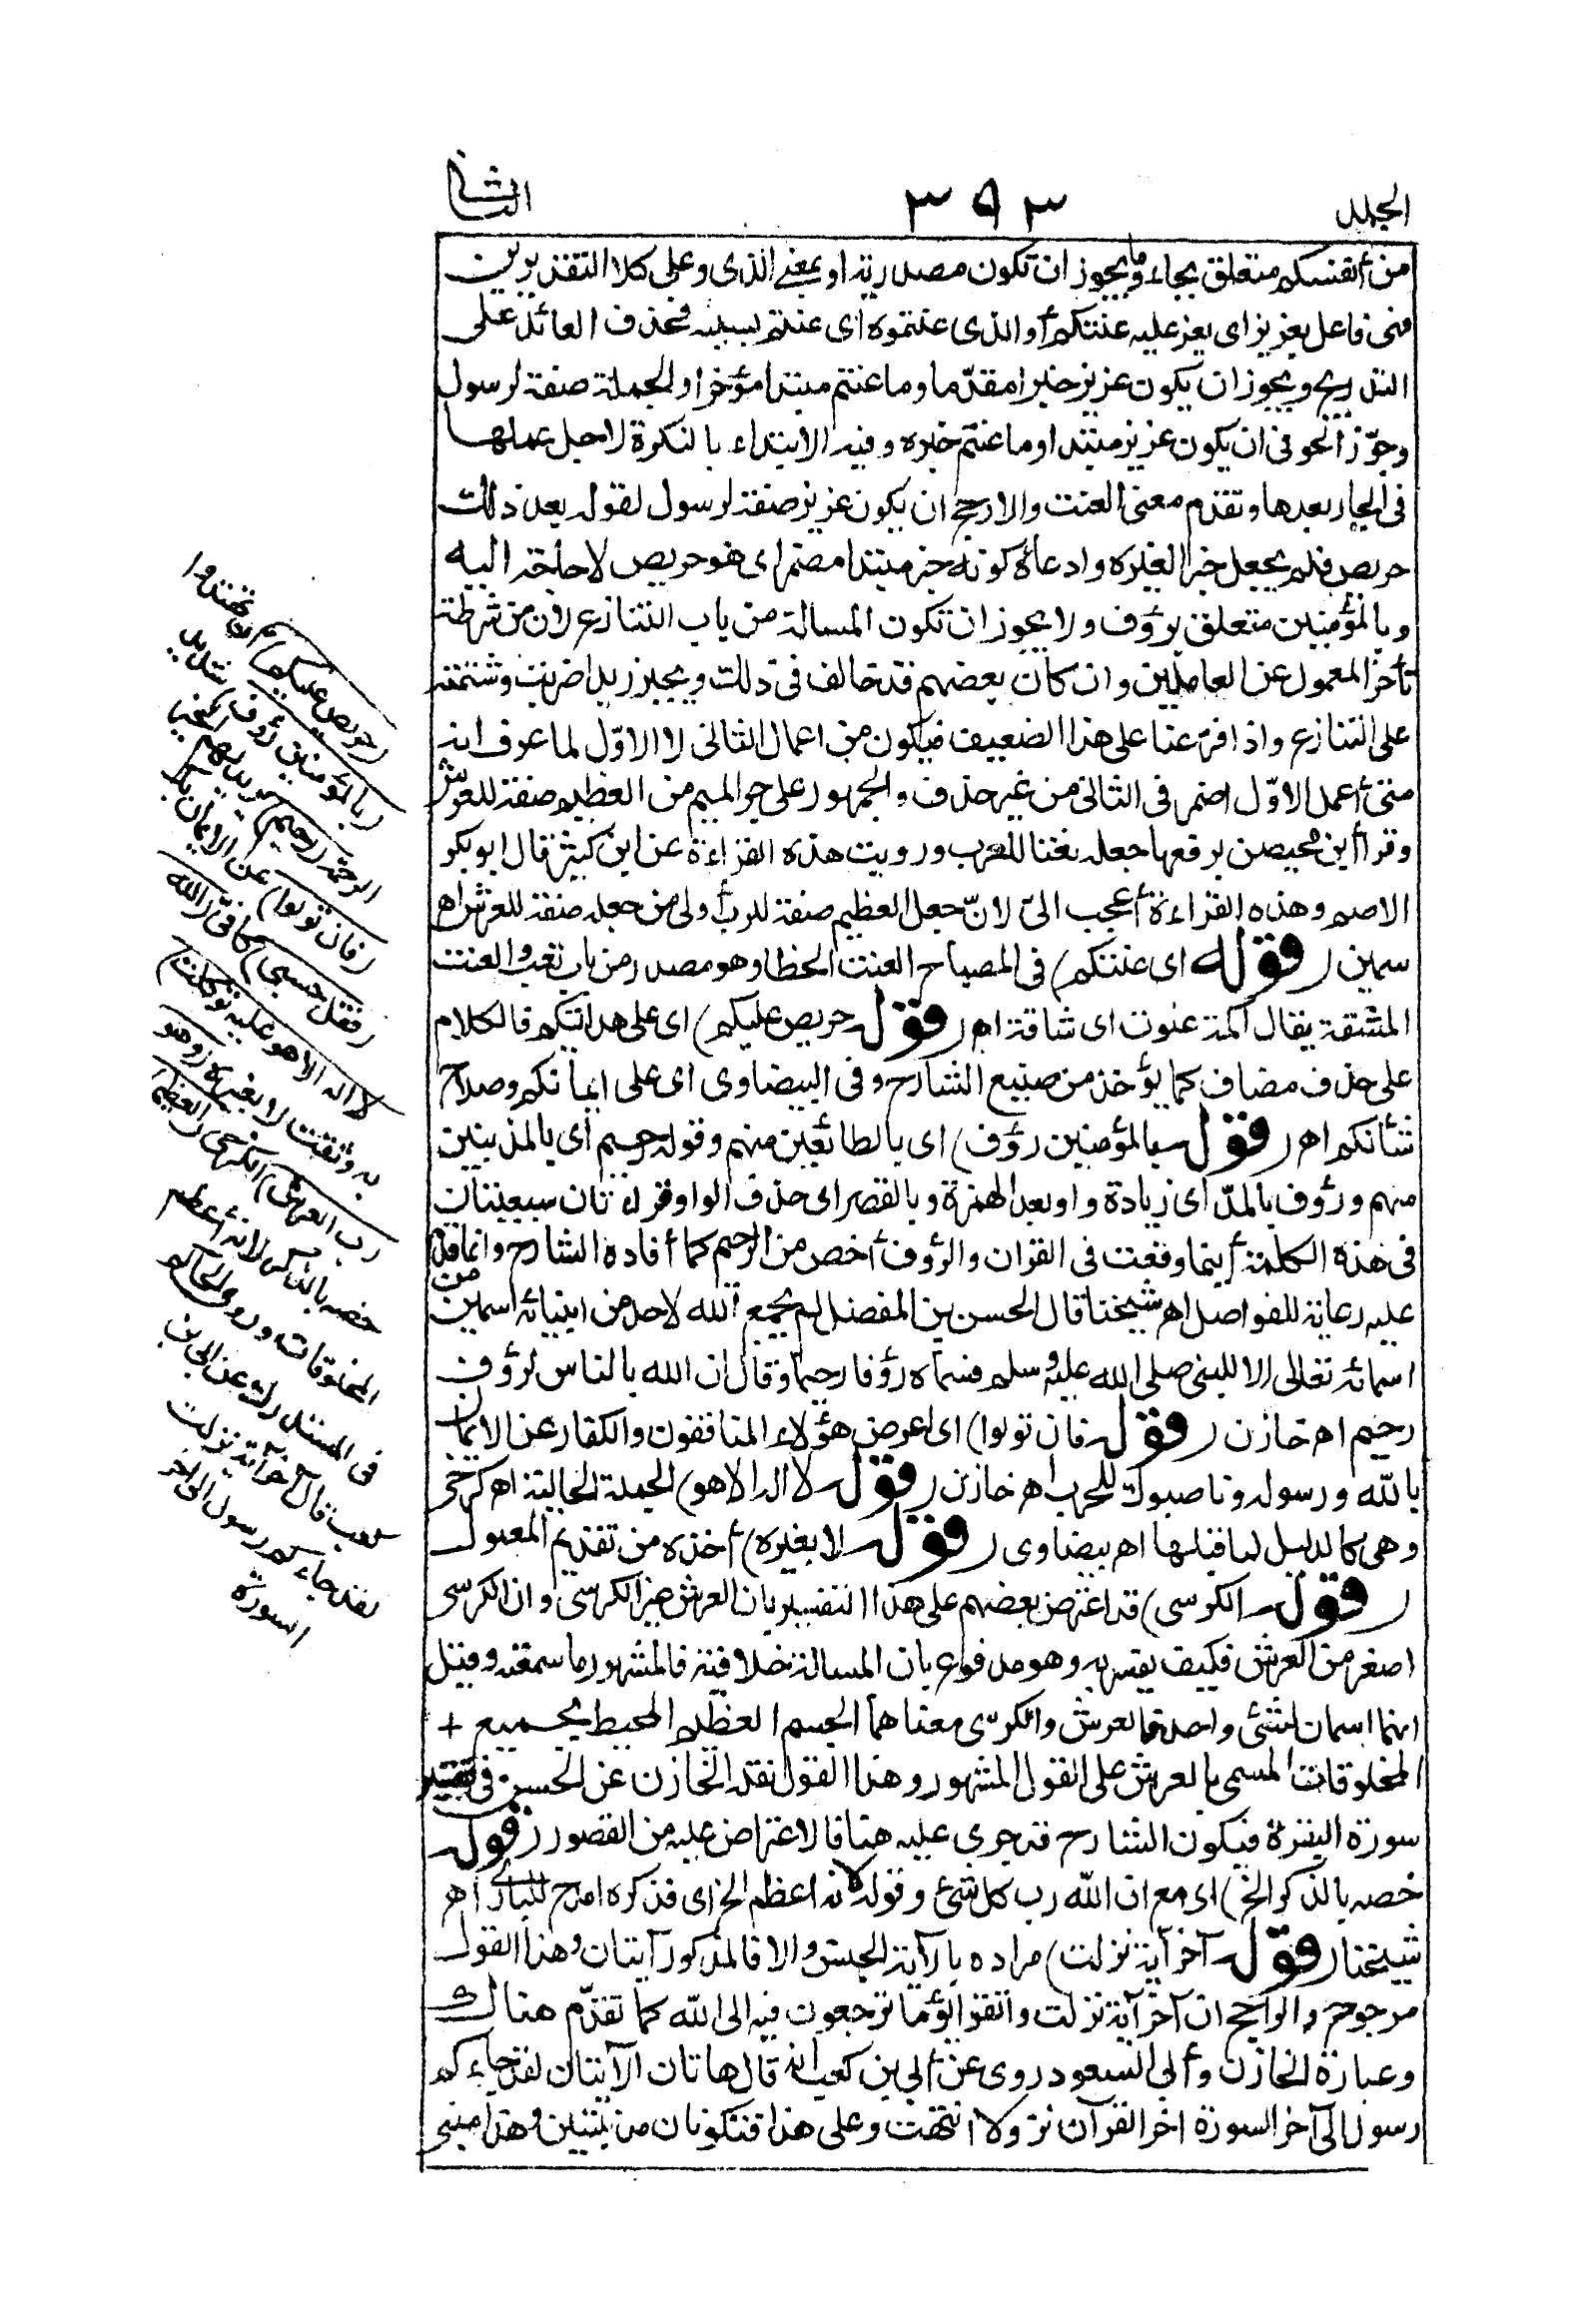 الجلد
٣٩٣
الثانى
من أنفسكم متعلق بجاء وما يجوز ان تكون مصدرية او بمعنى الذى وعلى كلا التقديرين
فهى فاعل بعزيز اى يعز عليه عنتكم أو الذى عنتموه اى عنتم بسببه فحذف العائد على
التدريج ويجوز ان يكون عزيز خبرا مقدّما وما عنتم مبتدا مؤخرا والجملة صفة لرسول
وجوّز الحوفى ان يكون عزيز مبتدا وما عنتم خبره وفيه الابتداء بالنكرة لاجل عملها
فى الجار بعدها وتقدم معنى العنت والارجح ان يكون عزيز صفة لرسول لقوله بعد ذلك
حريص فلم يجعل خبرا لغيره وادعاء كونه خبر مبتدا مضمر اى هو حريص لا حاجة اليه
وبالمؤمنين متعلق برؤف ولا يجوز ان تكون المسالة من باب التنازع لان من شرطه
تأخر المعمول عن العاملين وان كان بعضهم قد خالف فى ذلك ويجيز زيدا ضربت وشتمته
على التنازع واذا فرعنا على هذا الضعيف فيكون من اعمال الثانى لا الاوّل لما عرف انه
متى أعمل الاوّل اضمر فى الثانى من غير حذف والجمهور على جر الميم من العظيم صفة للعرش
وقرأ ابن محيصن برفعها جعله نعتا للرب ورويت هذه القراءة عن ابن كثير قال ابو بكر
الاصم وهذه القراءة أعجب الىّ لانّ جعل العظيم صفة للرب أولى من جعله صفة للعرش اهـ
سمين (قوله اى عنتكم) فى المصباح العنت الخطا وهو مصدر من باب تعب والعنت
المشقة يقال اكمة عنوت اى شاقة اهـ (قوله حريص عليكم) اى على هدايتكم فالكلام
على حذف مضاف كما يؤخذ من صنيع الشارح وفى البيضاوى اى على ايمانكم وصلاح
شأنكم اهـ (قوله بالمؤمنين رؤف) اى بالطائعين منهم وقوله رحيم اى بالمذنبين
منهم ورؤف بالمدّ اى زيادة واو بعد الهمزة وبالقصر اى حذف الواو قراءتان سبعيتان
فى هذه الكلمة أينما وقعت فى القران والرؤوف أخص من الرحيم كما أفاده الشارح وانما قدّم
عليه رعاية للفواصل اهـ شيخنا قال الحسن بن المفضل لم يجمع الله لاحد من انبيائه اسمين من
اسمائه تعالى الا للنبى صلى الله عليه وسلم فسماه رؤفا رحيما وقال ان الله بالناس لرؤف
رحيم اهـ خازن (قوله فان تولوا) اى اعرض هؤلاء المنافقون والكفار عن الايمان
بالله ورسوله وناصبوك للحرب اهـ خازن (قوله لا اله الا هو) الجملة الحالية اهـ كرخى
وهى كالدليل لما قبلها اهـ بيضاوى (قوله لا بغيره) أخذه من تقديم المعمول
(قوله الكرسى) قد اعترض بعضهم على هذا التفسير بان العرش غير الكرسى وان الكرسى
اصغر من العرش فكيف يفسر به وهو مدفوع بان المسالة خلافية فالمشهور ما سمعته وقيل
انهما اسمان لشئ واحد فالعرش والكرسى معناهما الجسم العظيم المحيط بجميع +
المخلوقات المسمى بالعرش على القول المشهور وهذا القول نقله الخازن عن الحسن فى تفسير
سورة البقرة فيكون الشارح قد جرى عليه هنا فالاعتراض عليه من القصور (قوله
خصه بالذكر الخ) اى مع ان الله رب كل شئ وقوله لانه اعظم الخ اى فذكره امدح للبارئ اهـ
شيخنا (قوله آخر آية نزلت) مراده بالآية الجنس والا فالمذكور آيتان وهذا القول
مرجوح والراجح ان آخر آية نزلت واتقوا يوما ترجعون فيه الى الله كما تقدّم هناك
وعبارة الخازن وأبى السعود روى عن أبى بن كعب انه قال هاتان الآيتان لقد جاءكم
رسول الى آخر السورة اخر القرآن نزولا انتهت وعلى هذا فتكونان مدنيتين وهذا مبنى
(حريص عليكم) ان تهتدوا
(بالمؤمنين رؤف) شديد
الرحمة (رحيم) يريد لهم الخير
(فان تولوا) عن الايمان بك
(فقل حسبى) كافىّ (الله
لا اله الا هو عليه توكلت)
به وثقت لا بغيره (وهو
رب العرش) الكرسى (العظيم)
خصه بالذكر لانه أعظم
المخلوقات وروى الحاكم
فى المستدرك عن أبى بن
كعب قال آخر آية نزلت
لقد جاءكم رسول الى آخر
السورة